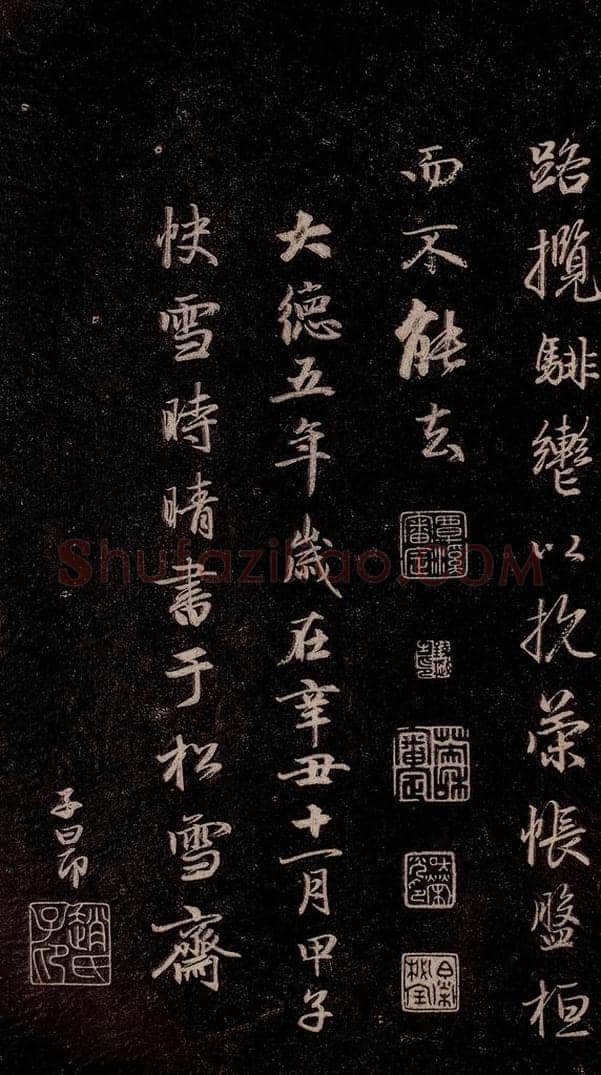 路攬騑轡以抗策悵盤桓
而不能去
覃溪審定
大德五年歲在辛丑十一月甲子
快雪時晴書于松雪齋
子昂
趙氏子昂
Shufazihao.COM